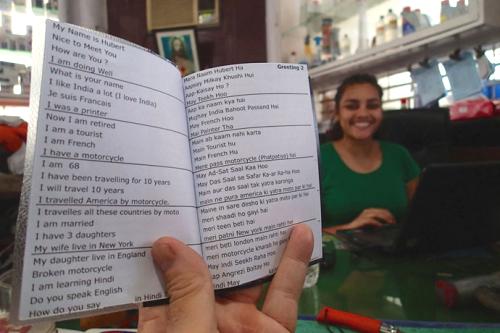 My Name is Hubert
Nice to Meet You
How are You ?
I am doing Well
What is your name
I like India a lot (I love India)
Je suis Francais
I was a printer
Now I am retired
I am a tourist
I am French
I have a motorcycle
I am 68
I have been travelling for 10 years
I will travel 10 years
I travelled America by motorcycle.
I travelles all these countries by moto
I am married
I have 3 daughters
My wife live in New York
My daughter live in England
Broken motorcycle
I am learning Hindi
Do you speak English
How do you say in Hindi
Greeting 2
Mara Naam Hubert Ha
Aapsay Milkay Khushi Hui
Aap Kaisay Ho ?
May Teekh Hoo
Aap ka naam kya hai
Mujhay India Bahoot Passand Hai
May French Hoo
Mai Painter Tha
Main ab kaam nahi karta
Main Tourist hu
Main French Hu
Mere pass motorcycle (Phatpatiya) hai
May Ad-Sat Saal Kaa Hoo
May Das Saal se Safar Ka-ar Ra-ha Hoo
Main aur das saal tak yatra karonga
main ne pura america ki yatra moto par ki hai
Maine in sare desho ki yatra moto par ki
meri shaadi ho gayi hai
meri teen beti hai
meri patni New york main rahti hai
meri beti london main rahti
meri motorcycle kharab ho
May indi Seekh Raha Hoo
ap Angrezi Boltay Ho
indi May